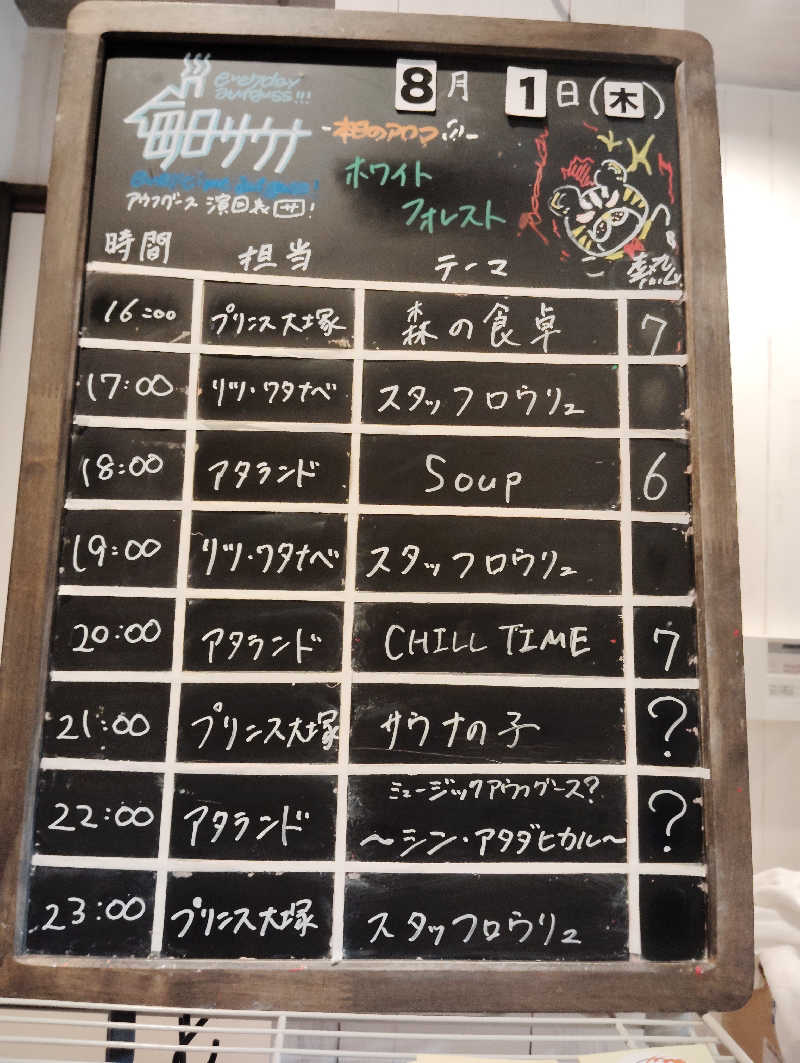 everyday
aufguss!!!
毎日サウナ
everytime Aufguss!
アウフグース 演目表 サ!
8月 1日(木)
-本日のアロマ!!!-
ホワイト
フォレスト
時間 担当 テーマ 熱
16:00 プリンス大塚 森の食卓 7
17:00 リツ・ワタナベ スタッフロウリュ
18:00 アタランド Soup 6
19:00 リツ・ワタナベ スタッフロウリュ
20:00 アタランド CHILL TIME 7
21:00 プリンス大塚 サウナの子 ?
22:00 アタランド ミュージックアウフグース? ?
〜シン・アタダヒカル〜
23:00 プリンス大塚 スタッフロウリュ